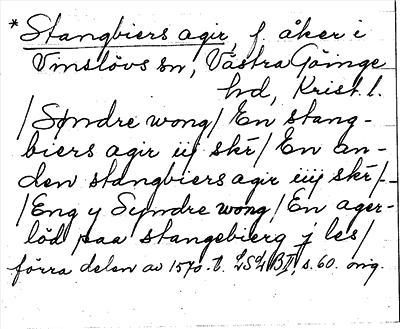 * Stangbiers agir, f åker i
Vinslövs sn, Västra Göinge
hd, Krist. l.
/Søndre wong/ En stang-
biers agir iij skr/ En an-
den stangbiers agir iiij skr/--
/Eng y Syndre wong/ En ager-
löd paa stangebierg j les/
förra delen av 1570-t. LSÆ BII s. 60. orig.